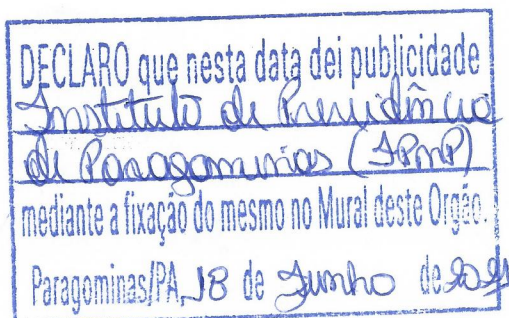 DECLARO que nesta data dei publicidade
Instituto de Previdência
de Paragominas (IPMP)
mediante a fixação do mesmo no Mural deste Orgão.
Paragominas/PA, 18 de Junho de 2021